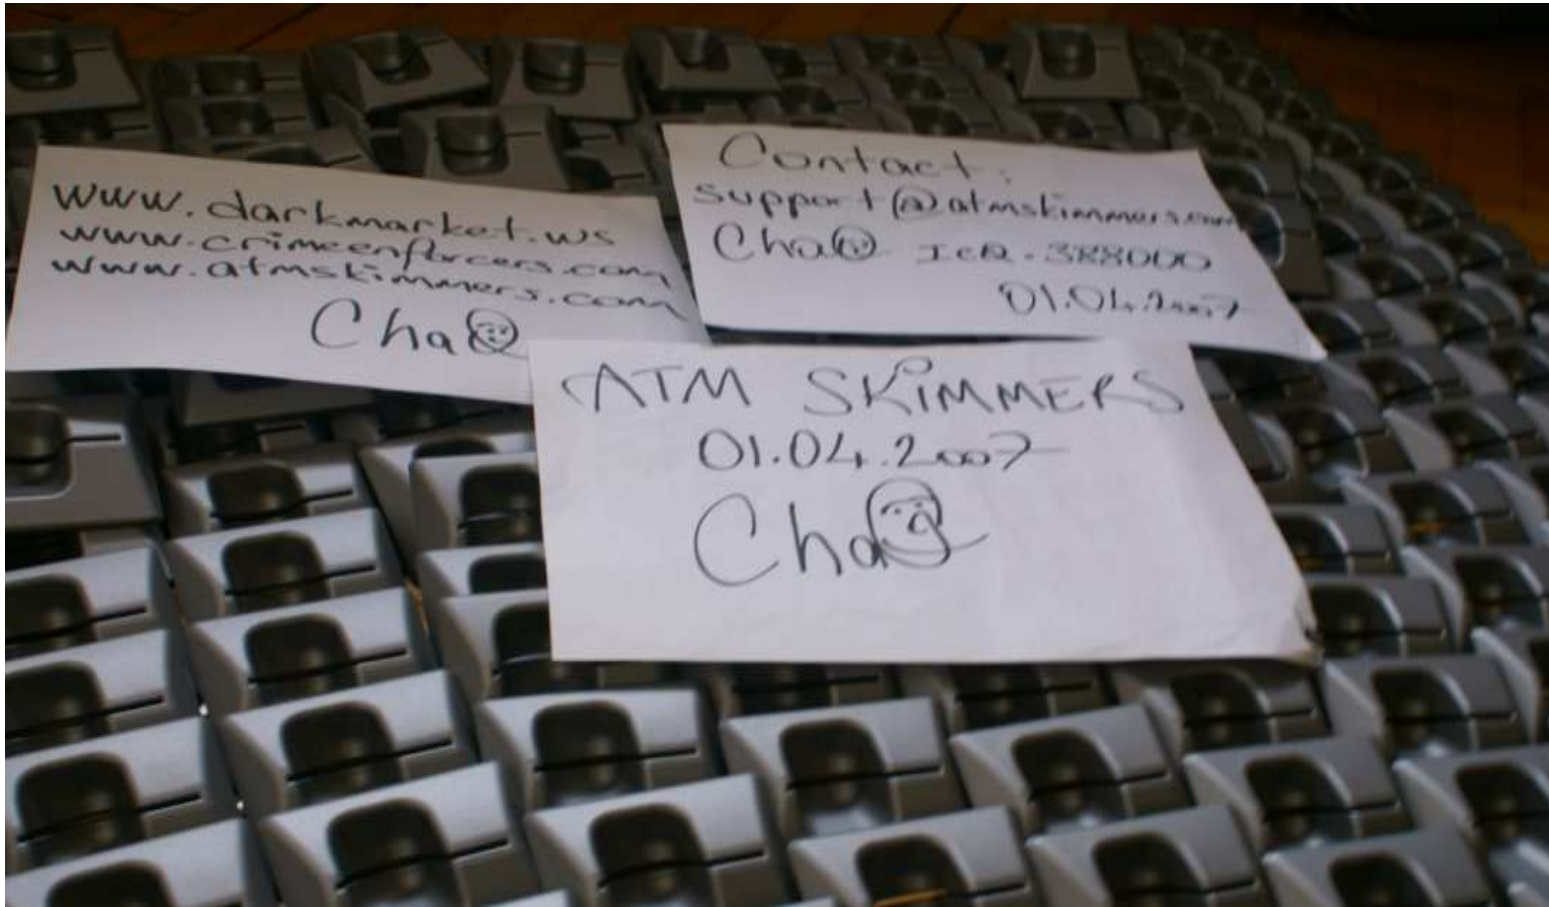 www.darkmarket.ws
www.crimeenforcers.com
www.atmskimmers.com
Cha
Contact:
support@atmskimmers.com
Cha ICQ.388000
01.04.2007
ATM SKIMMERS
01.04.2007
Cha